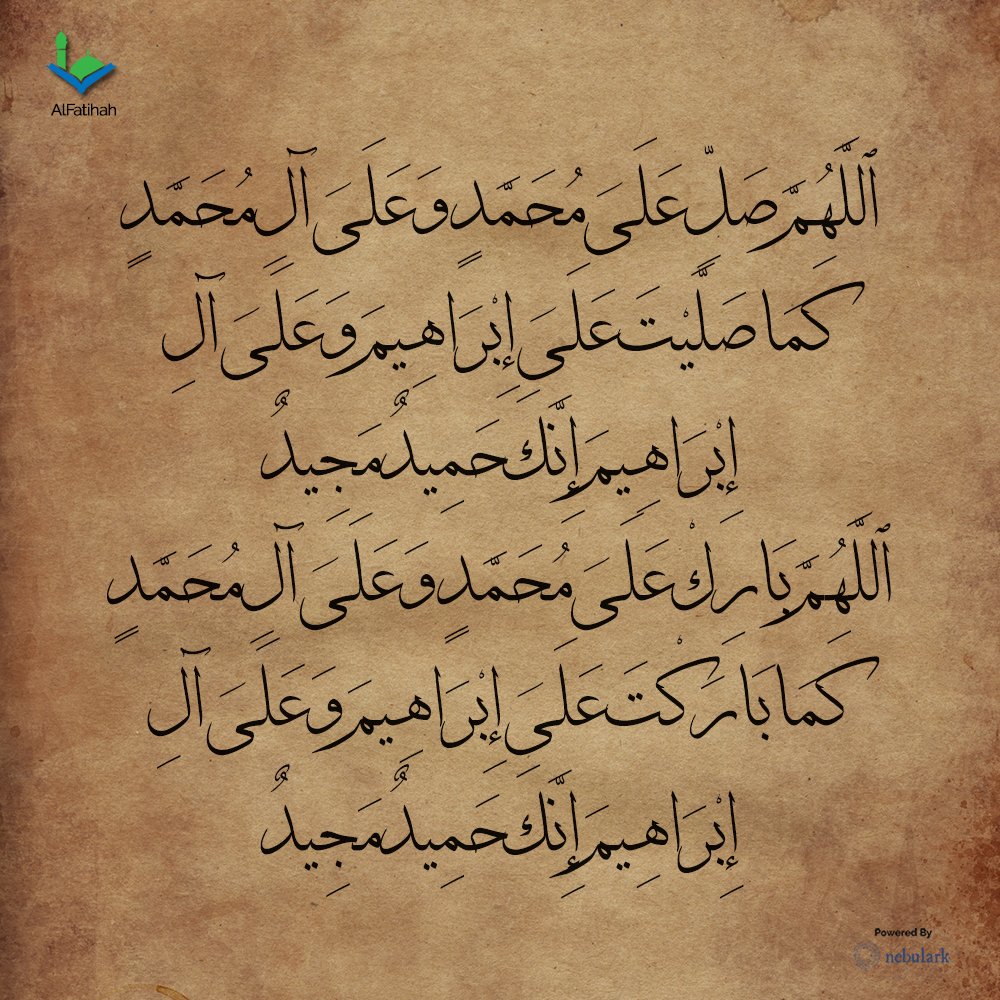 AlFatihah
ٱللَّهُمَّ صَلِّ عَلَىٰ مُحَمَّدٍ وَعَلَىٰ آلِ مُحَمَّدٍ
كَمَا صَلَّيْتَ عَلَىٰ إِبْرَاهِيمَ وَعَلَىٰ آلِ
إِبْرَاهِيمَ إِنَّكَ حَمِيدٌ مَجِيدٌ
ٱللَّهُمَّ بَارِكْ عَلَىٰ مُحَمَّدٍ وَعَلَىٰ آلِ مُحَمَّدٍ
كَمَا بَارَكْتَ عَلَىٰ إِبْرَاهِيمَ وَعَلَىٰ آلِ
إِبْرَاهِيمَ إِنَّكَ حَمِيدٌ مَجِيدٌ
Powered By
nebulark